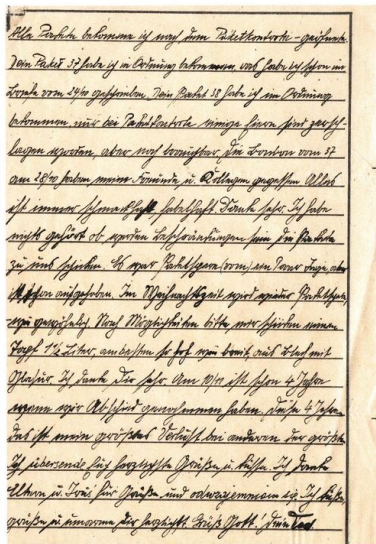 Alle Pakete bekomme ich nach dem Paketkontrole - geöfnete.
Dein Paket 57 habe ich in Ordnung bekommen, das habe ich schon im
Briefe vom 24/10 geschrieben. Dein Paket 58 habe ich im Ordnung
bekommen, nur bei Paketkontrole einige Eiern sind zersch-
lagen worden, aber noch brauchbar. Die Bonbon vom 57
am 28/10 haben meine Freunde u. Kollegen gegessen. Alles
ist immer schmackhaft, fabelhaft. Danke sehr. Ich habe
nichts gehört ob werden Beschränkungen sein die Pakete
zu uns schicken. Es war ein Paar Tage, aber
ist schon aufgehoben. Im Weihnachtszeit wird wieder
wie gewöhnlich. Nach Möglichkeiten bitte mir schicken einen
Topf 1½ Liter, am besten so hof wie breit, aus Blech mit
Glasur. Ich danke Dir sehr. Am 10/11 ist schon 4 Jahre
wenn wir Abschied genommen haben. Diese 4 Jahre
das ist mein größtes Verlust bei anderen der größte.
Ich übersende Euch herzlichste Grüße u. Küsse. Ich danke
Eltern u. für Grüße und ich. Ich küße,
grüße u. umarme Dir herzlichst. Grüß Gott! Dein